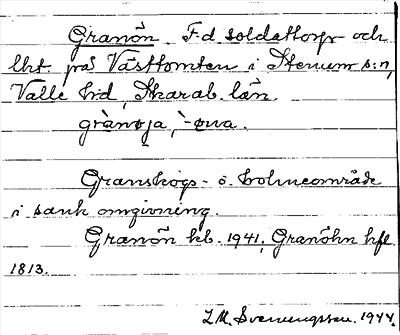 Granön F.d soldattorp och
lht. på Västtomten i Stenum s:n,
Valle hd, Skarab. län.
grànøja, -øna.
Granskogs- o. holmeområde
i sank omgivning.
Granön kb. 1941, Granöhn hfl
1813.
Svenungsson. 1944.